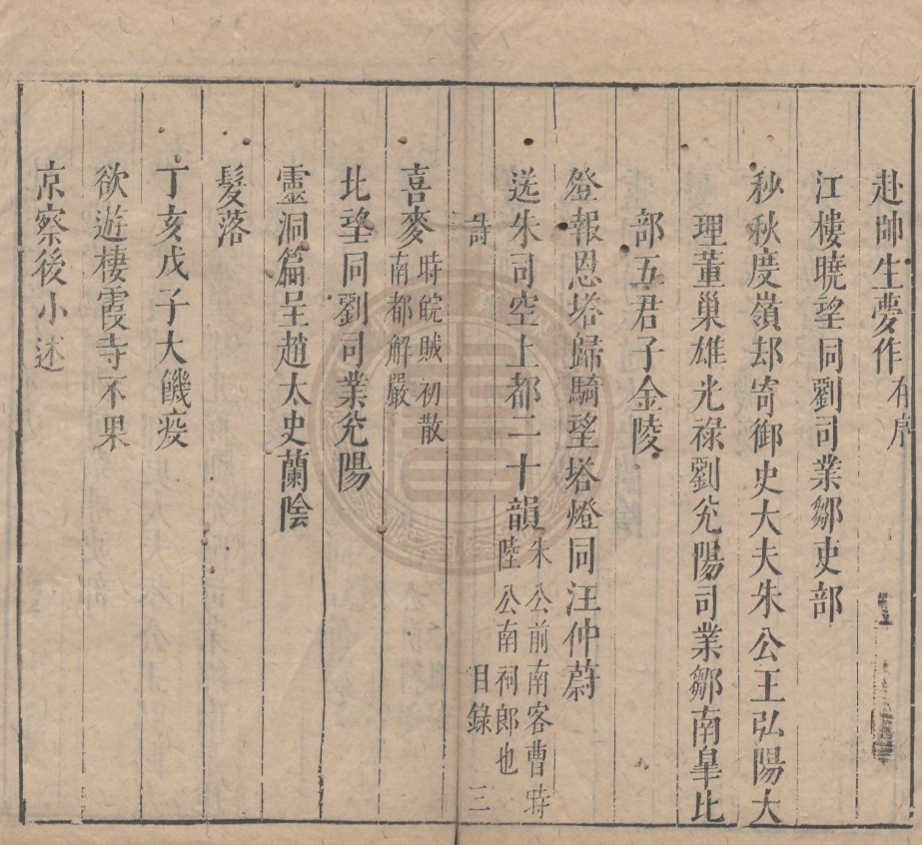 赴帥生夢作有序
江樓曉望同劉司業鄒吏部
秒秋度嶺却寄御史大夫朱公王弘陽大
理董巢雄光祿劉兊陽司業鄒南臯比
部五君子金陵
登報恩塔歸騎望塔燈同汪仲蔚
送朱司空上都二十韻朱公前南客曹時
陸公南祠郎也
詩 目錄 三
喜麥時皖賊初散
南都解嚴
北望同劉司業兊陽
靈洞篇呈趙太史蘭陰
髮落
丁亥戊子大饑疫
欲遊棲霞寺不果
京察後小述